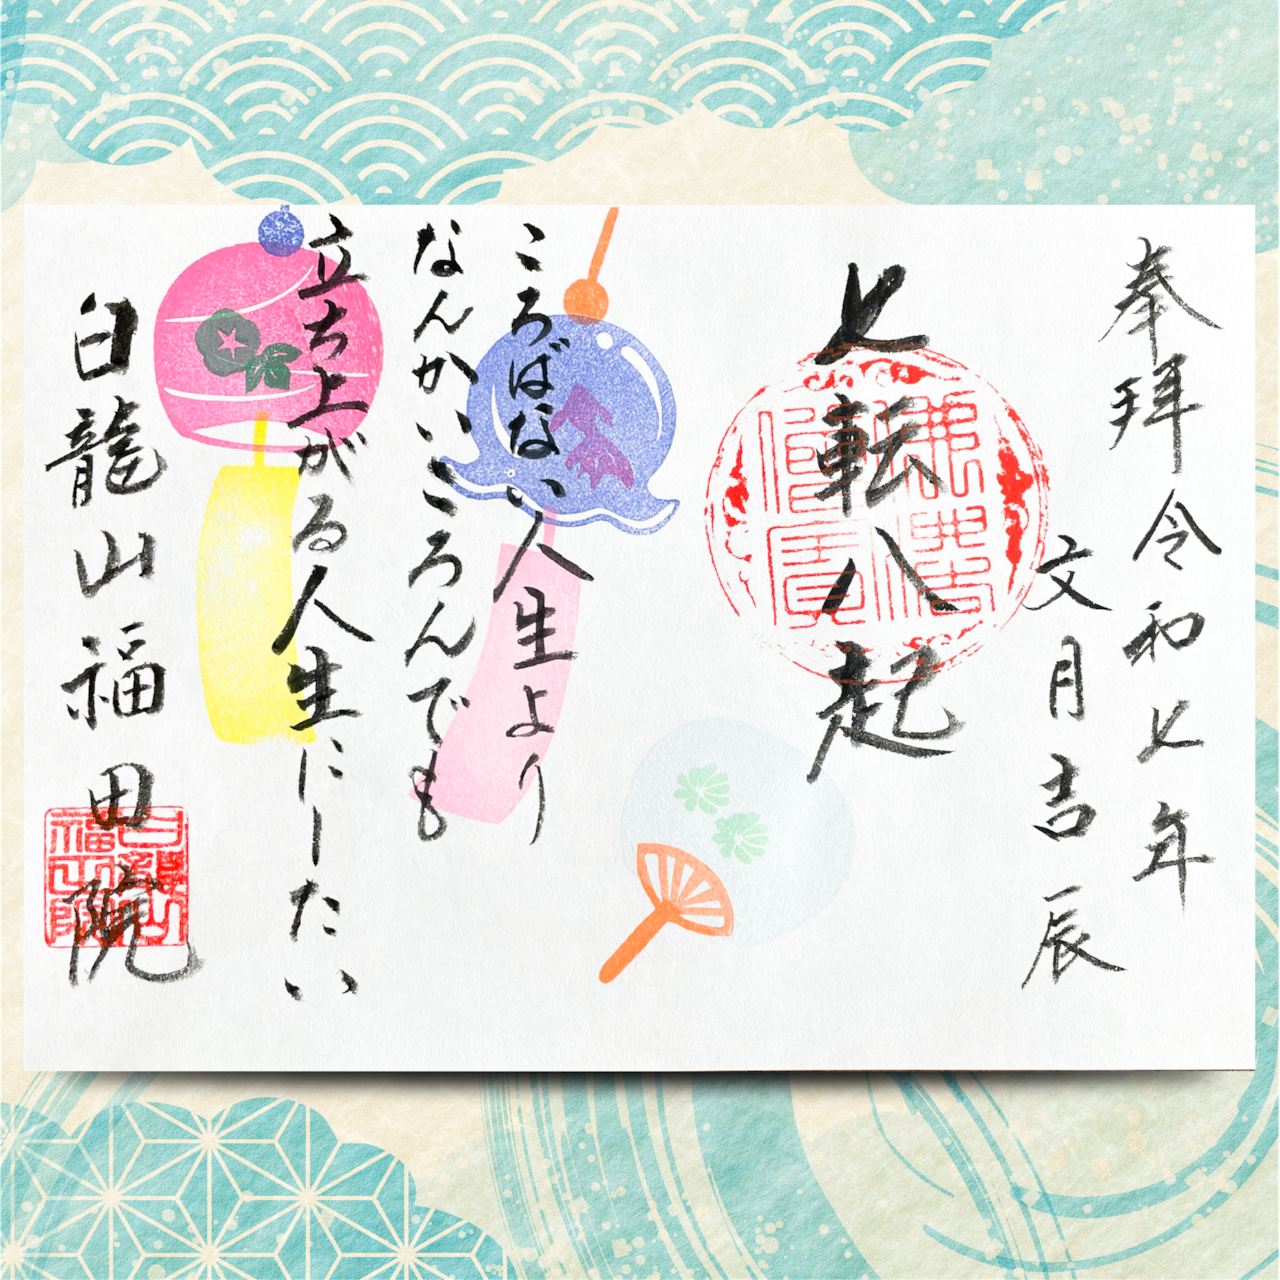 奉拝 令和七年
文月吉辰
七転八起
ころばない人生より
なんかいころんでも
立ち上がる人生にーたい
白龍山福田院